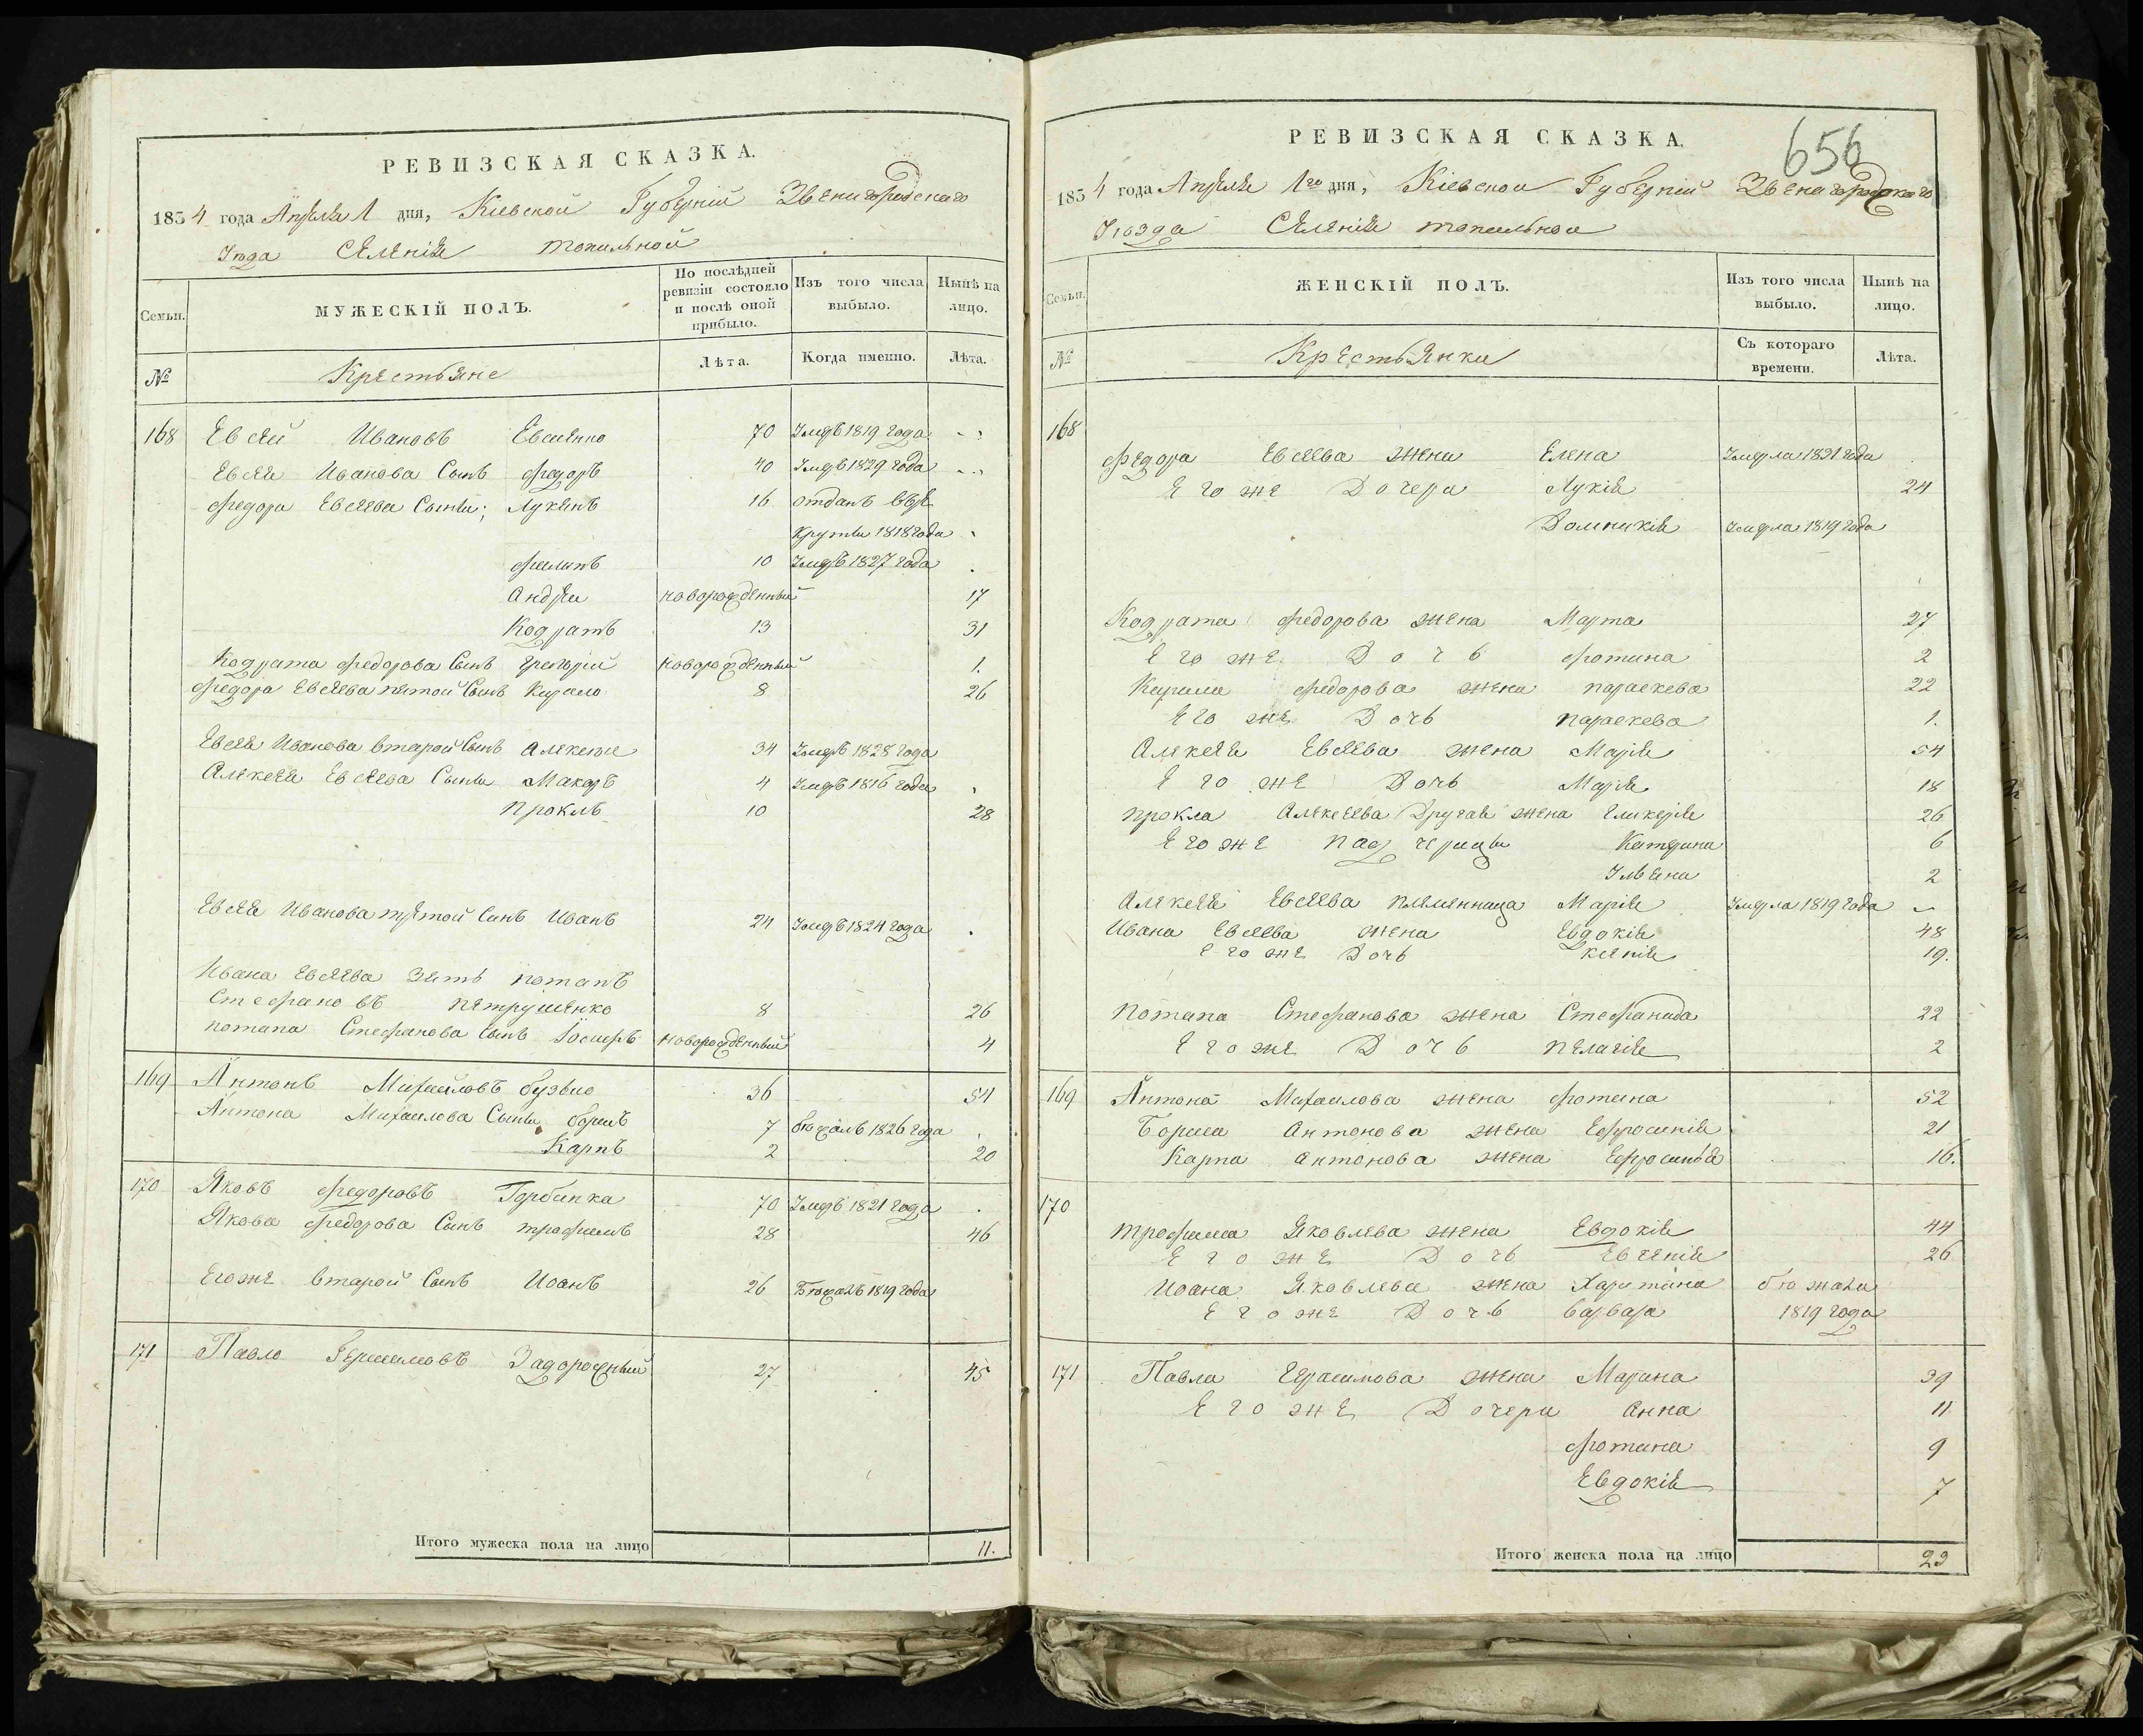 РЕВИЗСКАЯ СКАЗКА.
1834 года Апреля 1 дня, Кіевской Губерніи Звенигородскаго
Уезда Селенія Топильной
Семьи. МУЖЕСКІЙ ПОЛЪ. По послѣдней ревизіи состояло и послѣ оной прибыло. Изъ того числа выбыло. Нынѣ на лицо.
№ Крестьяне Лѣта. Когда именно. Лѣта.
168 Евсей Ивановъ Евсиенко 70 Умеръ 1819 года
Евсея Иванова Сынъ Федоръ 40 Умеръ 1829 года
Федора Евсеева Сыны; Лукянъ 16 отданъ врек
круты 1818 года
Филипъ 10 Умеръ 1827 года
Андрей новорожденный 17
Кодратъ 13 31
Кодрата Федорова Сынъ Григорій новорожденный 1.
Федора Евсеева пятой Сынъ Кирило 8 26
Евсея Иванова второй Сынъ Алексей 34 Умеръ 1828 года
Алексея Евсеева Сыны Макаръ 4 Умеръ 1816 года
Проклъ 10 28
Евсея Иванова третой Сынъ Иванъ 24 Умеръ 1824 года
Ивана Евсеева зять Потапъ
Стефановъ Петрушенко 8 26
Потапа Стефанова Сынъ Іосифъ новорожденный 4
169 Антонъ Михайловъ 36 54
Антона Михаилова Сыны Борисъ 7 бежалъ 1826 года
Карпъ 2 20
170 Яковъ Федоровъ Горбинка 70 Умеръ 1821 года
Якова Федорова Сынъ Трофимъ 28 46
Егоже второй Сынъ Иоанъ 26 Бежалъ 1819 года
171 Павло Герасимовъ Задорожный 27 45
Итого мужеска пола на лицо 11.
656
РЕВИЗСКАЯ СКАЗКА.
1834 года Апреля 1го дня, Кіевской Губерніи Звенигородскаго
Уезда Селенія Топильной
Семьи. ЖЕНСКІЙ ПОЛЪ. Изъ того числа выбыло. Нынѣ на лицо.
№ Крестьянки Съ котораго времени. Лѣта.
168
Федора Евсеева жена Елена Умерла 1831 года
Егоже Дочери Лукія 24
Домникія Умерла 1819 года
Кодрата Федорова жена Марта 27
Егоже Дочь Фотина 2
Кирила Федорова жена Параскева 22
Егоже Дочь Параскева 1.
Алексея Евсеева жена Марія 54
Егоже Дочь Марія 18
Прокла Алексеева Другая жена Гликерія 26
Егоже Падчерицы Катерина 6
Ульяна 2
Алексея Евсеева племенница Марія Умерла 1819 года
Ивана Евсеева жена Евдокія 48
Егоже Дочь Ксенія 19.
Потапа Стефанова жена Стефанида 22
Егоже Дочь Пелагія 2
169 Антона Михаилова жена Фотина 52
Бориса Антонова жена Ефросинія 21
Карпа Антонова жена Ефросинья 16.
170
Трофима Яковлева жена Евдокія 44
Егоже Дочь Евгенія 26
Иоана Яковлева жена Харитина бежали
Егоже Дочь Варвара 1819 года
171 Павла Герасимова жена Марина 39
Егоже Дочери Анна 11
Фотина 9
Евдокія 7
Итого женска пола на лицо 23